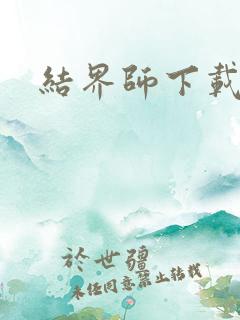 結界師下載
於世疆
未任同意禁止转载